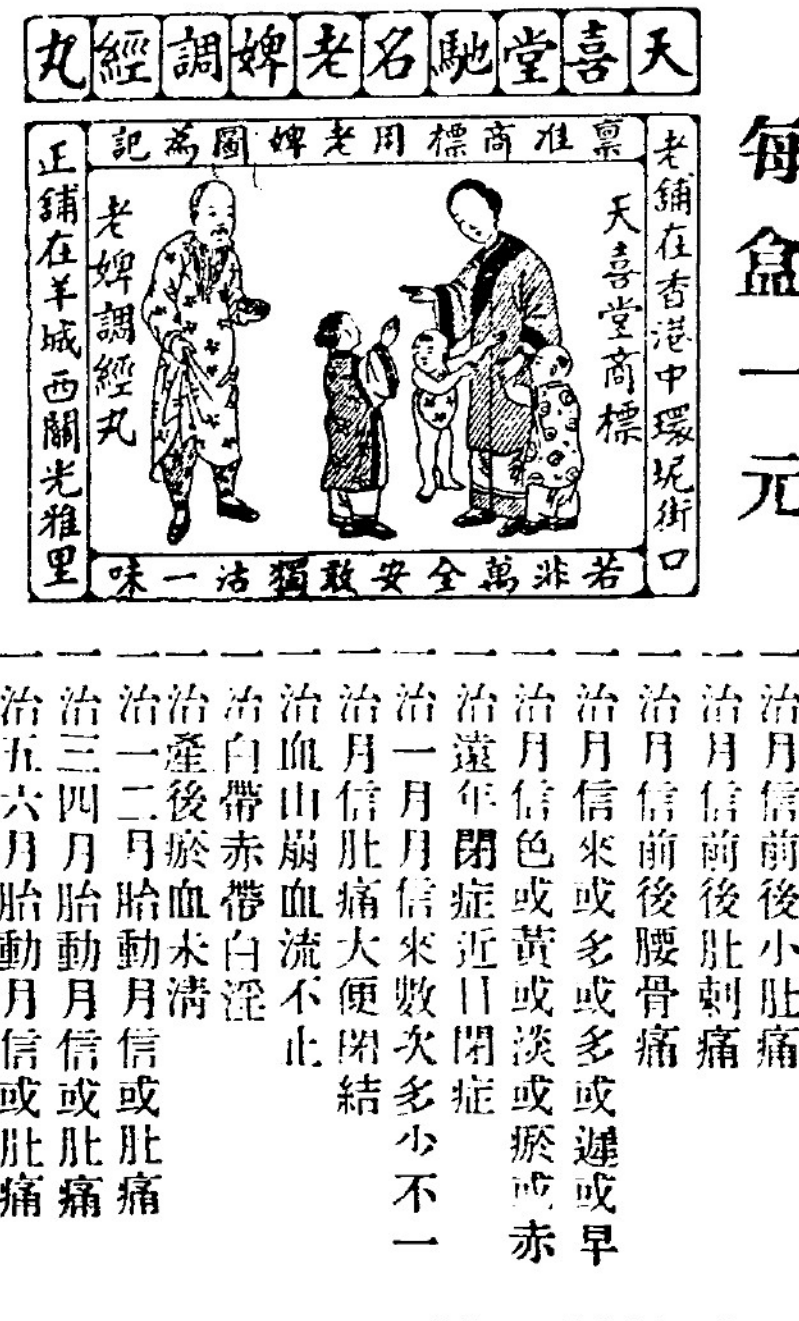 天喜堂馳名老婢調經丸
每盒一元
老舖在香港中環坭街口
稟准商標用老婢圖為記
正舖在羊城西關光雅里
天喜堂商標
老婢調經丸
若非萬全安敢獨沽一味
一治月信前後小肚痛
一治月信前後肚刺痛
一治月信前後腰骨痛
一治月信來或多或多或遲或早
一治月信色或黃或淡或瘀或赤
一治遠年閉症近日閉症
一治一月月信來數次多少不一
一治月信肚痛大便閉結
一治血山崩血流不止
一治白帶赤帶白淫
一治產後瘀血未清
一治一二月胎動月信或肚痛
一治三四月胎動月信或肚痛
一治五六月胎動月信或肚痛